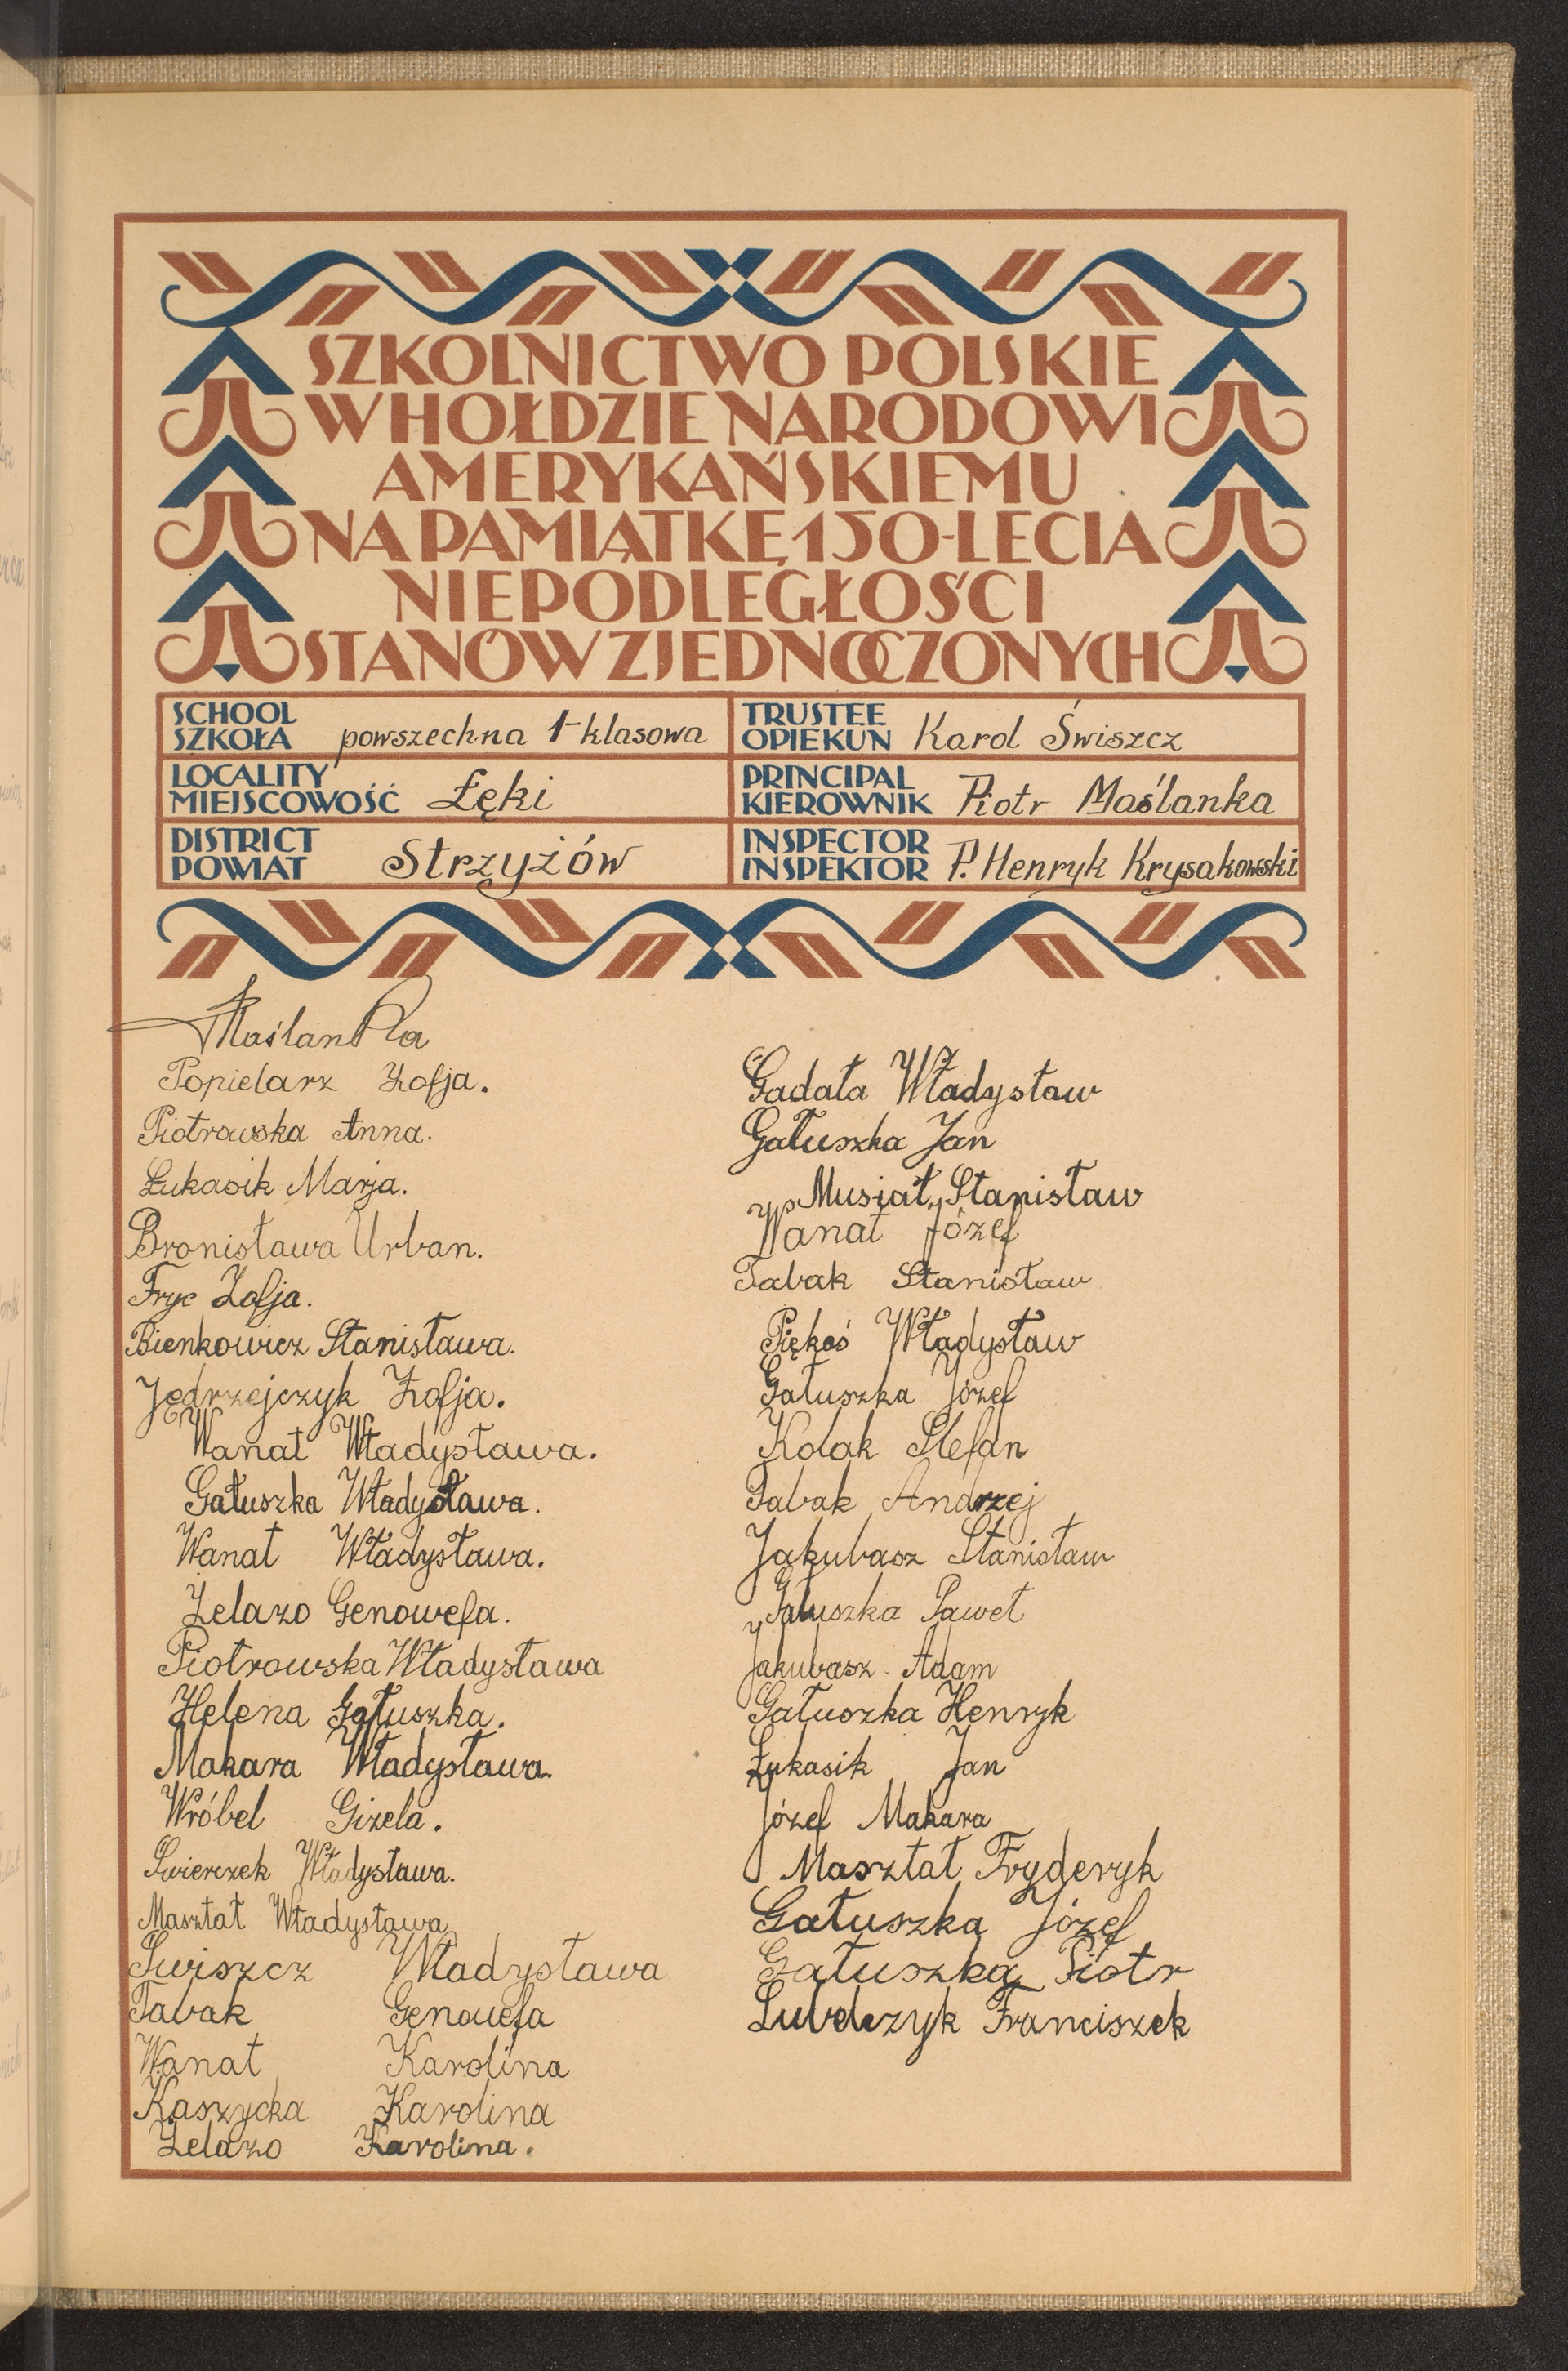 SZKOLNICTWO POLSKIE
W HOŁDZIE NARODOWI
AMERYKAŃSKIEMU
NA PAMIĄTKĘ 150-LECIA
NIEPODLEGŁOŚCI
STANÓW ZJEDNOCZONYCH
SCHOOL
SZKOŁA powszechna 1-klasowa
TRUSTEE
OPIEKUN Karol Świszcz
LOCALITY
MIEJSCOWOŚĆ Łęki
PRINCIPAL
KIEROWNIK Piotr Maślanka
DISTRICT
POWIAT Strzyżów
INSPECTOR
INSPEKTOR P. Henryk Krysakowski
Maślanka
Popielarz Zofja.
Piotrowska Anna.
Łukasik Marja.
Bronisława Urban.
Fryc Zofja.
Bienkowicz Stanisława.
Jędrzejczyk Zofja.
Wanat Władysława.
Gałuszka Władysława.
Wanat Władysława.
Żelazo Genowefa.
Piotrowska Władysława
Helena Gałuszka.
Makara Władysława.
Wróbel Gizela.
Świerczek Władysława.
Masztat Władysława
Świszcz Władysława
Tabak Genowefa
Wanat Karolina
Kaszycka Karolina
Żelazo Karolina.
Gadała Władysław
Gałuszka Jan
Musiał Stanisław
Wanat Józef
Tabak Stanisław
Piękoś Władysław
Gałuszka Józef
Kolak Stefan
Tabak Andrzej
Jakubasz Stanisław
Gałuszka Paweł
Jakubasz Adam
Gałuszka Henryk
Łukasik Jan
Józef Makara
Masztat Fryderyk
Gałuszka Józef
Gałuszka Piotr
Franciszek